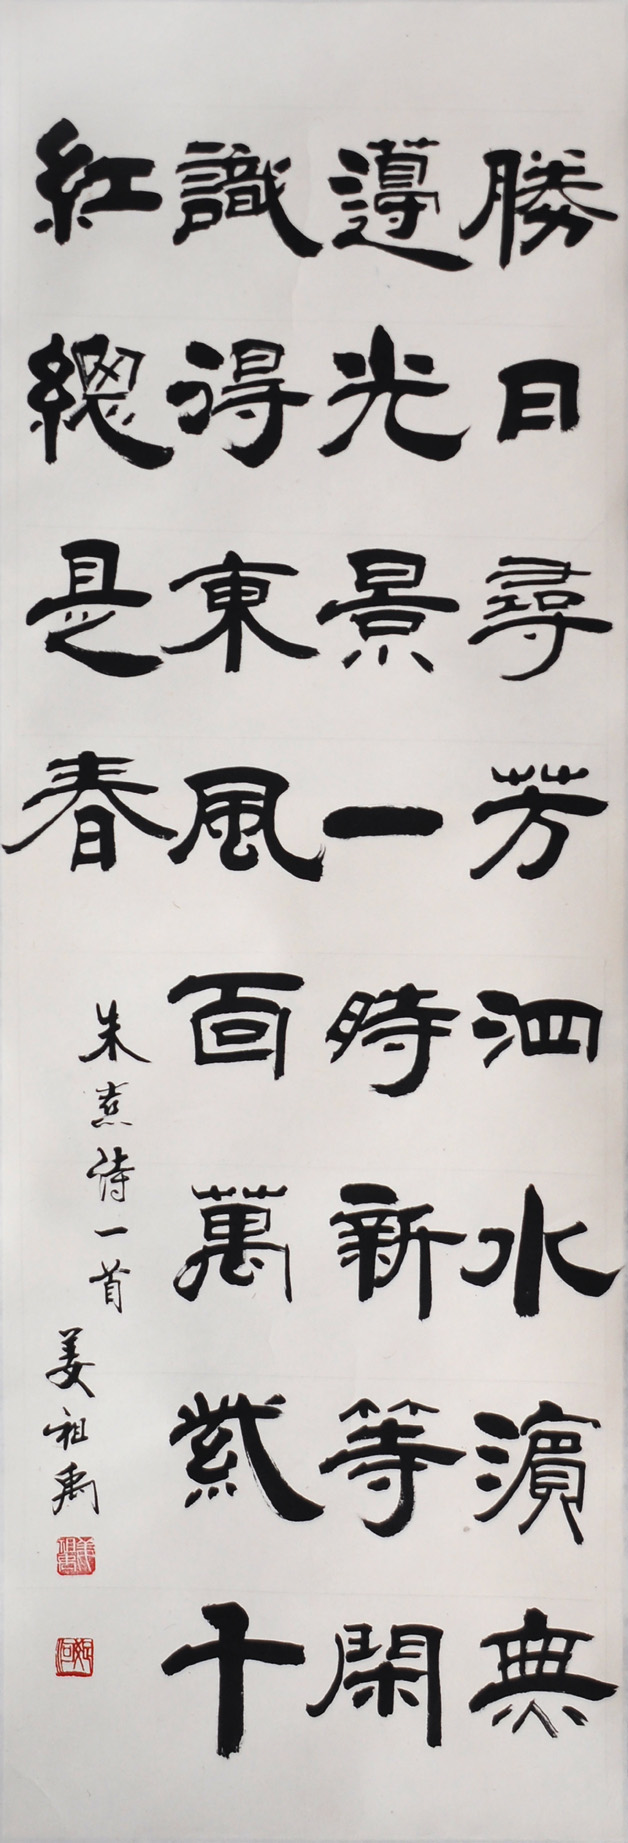 勝日尋芳泗水濱無
邊光景一時新等閑
識得東風面萬紫千
紅總是春
朱熹詩一首
姜祖禹